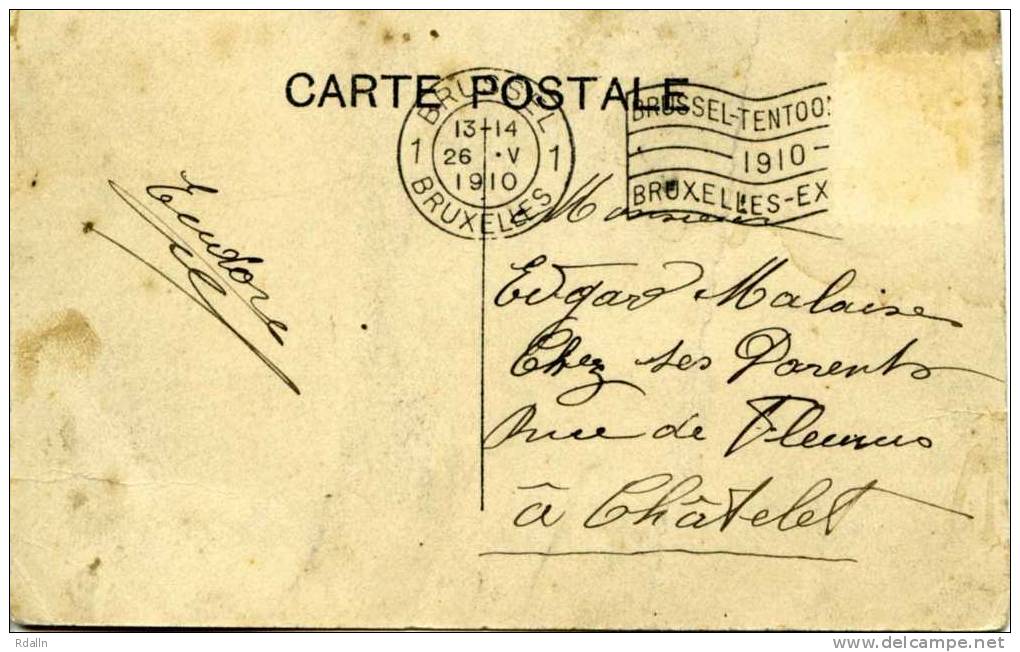 CARTE POSTALE
BRUSSEL
13-14
1 26 · V 1
1910
BRUXELLES
BRUSSEL-TENTOON
1910-
BRUXELLES-EX
Monsieur
Edgard Malaise
Chez ses Parents
Rue de Fleurus
à Châtelet
Rdalln
www.delcampe.net